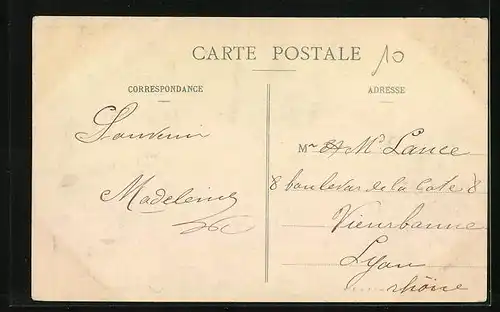 CARTE POSTALE
10
CORRESPONDANCE
ADRESSE
Souvenir
Madeleine
M Lance
8 boulevar de la Cote 8
Vieurbanne
Lyon
rhône